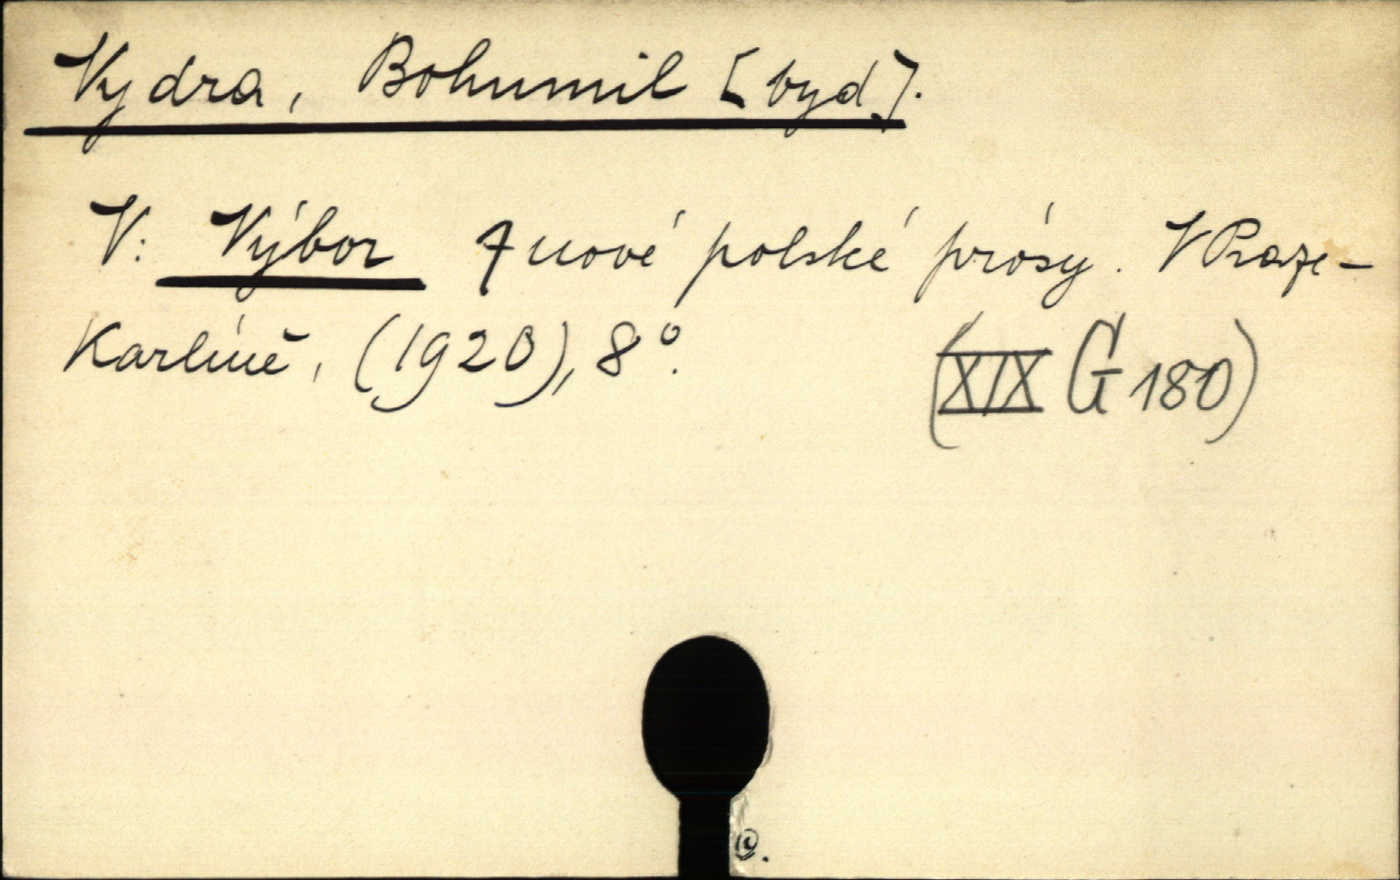 Vydra, Bohumil [vyd].
V: Výbor z nové polské prósy. V Praze-
Karlíně, (1920), 8°.
(XIX G 180)